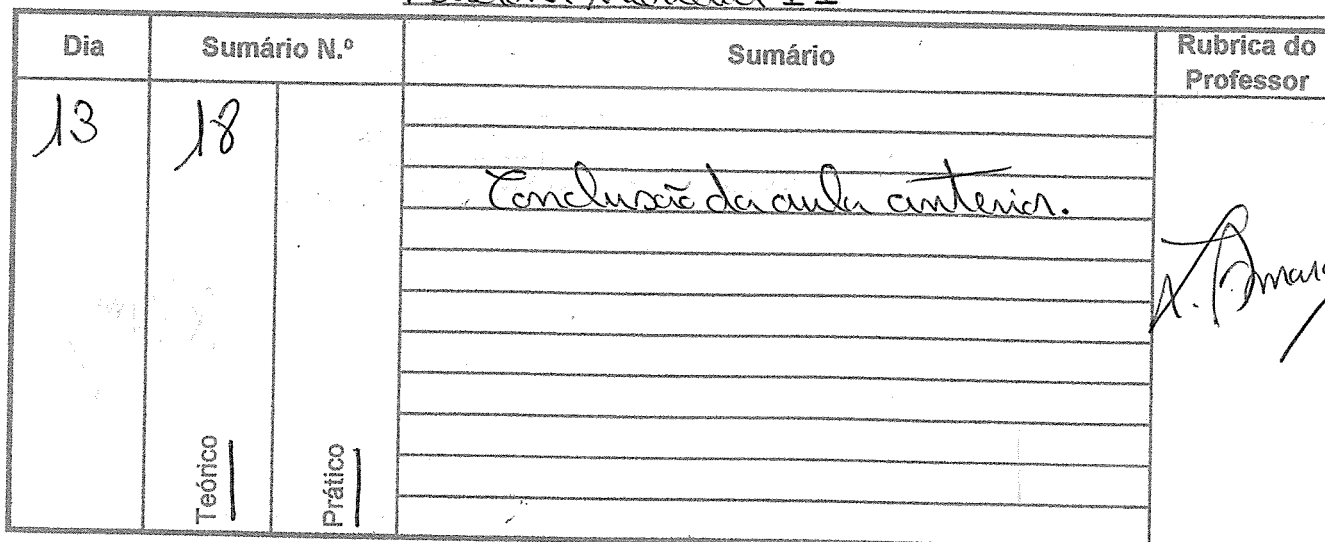 II
Dia Sumário N.º Sumário Rubrica do Professor
13 18
Conclusão da aula anterior.
Teórico Prático